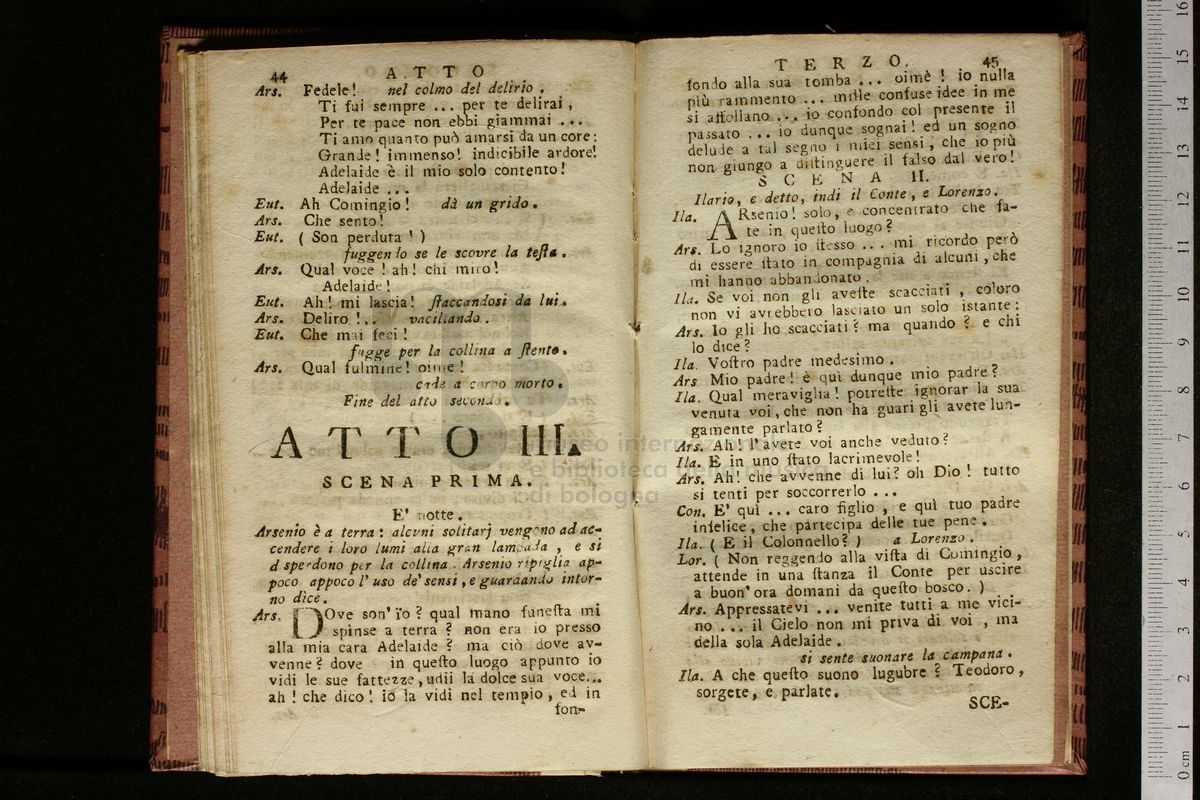 44 ATTO
Ars. Fedele! nel colmo del delirio.
Ti fui sempre ... per te delirai,
Per te pace non ebbi giammai ...
Ti amo quanto può amarsi da un core:
Grande! immenso! indicibile ardore!
Adelaide è il mio solo contento!
Adelaide ...
Eut. Ah Comingio! dà un grido.
Ars. Che sento!
Eut. ( Son perduta! )
fuggendo se le scovre la teſta.
Ars. Qual voce! ah! chi miro!
Adelaide!
Eut. Ah! mi lascia! ſtaccandosi da lui.
Ars. Deliro!.. vacillando.
Eut. Che mai feci!
fugge per la collina a ſtento.
Ars. Qual fulmine! oimè!
cade a corpo morto.
Fine del atto secondo.
ATTO III.
SCENA PRIMA.
E' notte.
Arsenio è a terra: alcuni solitarj vengono ad ac-
cendere i loro lumi alla gran lampada, e si
disperdono per la collina. Arsenio ripiglia ap-
poco appoco l' uso de' sensi, e guardando intor-
no dice.
Ars. DOve son' io? qual mano funeſta mi
spinse a terra? non era io presso
alla mia cara Adelaide? ma ciò dove av-
venne? dove in queſto luogo appunto io
vidi le sue fattezze, udii la dolce sua voce...
ah! che dico! io la vidi nel tempio, ed in
fon-
TERZO. 45
fondo alla sua tomba ... oimè! io nulla
più rammento ... mille confuse idee in me
si affollano ... io confondo col presente il
passato ... io dunque sognai! ed un sogno
delude a tal segno i miei sensi, che io più
non giungo a diſtinguere il falso dal vero!
SCENA II.
Ilario, e detto, indi il Conte, e Lorenzo.
Ila. ARsenio! solo, e concentrato che fa-
te in queſto luogo?
Ars. Lo ignoro io ſtesso ... mi ricordo però
di essere ſtato in compagnia di alcuni, che
mi hanno abbandonato.
Ila. Se voi non gli aveſte scacciati, coloro
non vi avrebbero lasciato un solo istante:
Ars. Io gli ho scacciati? ma quando? e chi
lo dice?
Ila. Voſtro padre medesimo.
Ars. Mio padre! è quì dunque mio padre?
Ila. Qual meraviglia! potreſte ignorar la sua
venuta voi, che non ha guari gli avete lun-
gamente parlato?
Ars. Ah! l' avete voi anche veduto?
Ila. E in uno ſtato lacrimevole!
Ars. Ah! che avvenne di lui? oh Dio! tutto
si tenti per soccorrerlo ...
Con. E' quì ... caro figlio, e quì tuo padre
infelice, che partecipa delle tue pene.
Ila. ( E il Colonnello? ) a Lorenzo.
Lor. ( Non reggendo alla viſta di Comingio,
attende in una ſtanza il Conte per uscire
a buon' ora domani da queſto bosco. )
Ars. Appressatevi ... venite tutti a me vici-
no ... il Cielo non mi priva di voi, ma
della sola Adelaide.
si sente suonare la campana.
Ila. A che queſto suono lugubre? Teodoro,
sorgete, e parlate.
SCE-
museo internazionale
e biblioteca della musica
di bologna
0 cm 1 2 3 4 5 6 7 8 9 10 11 12 13 14 15 16